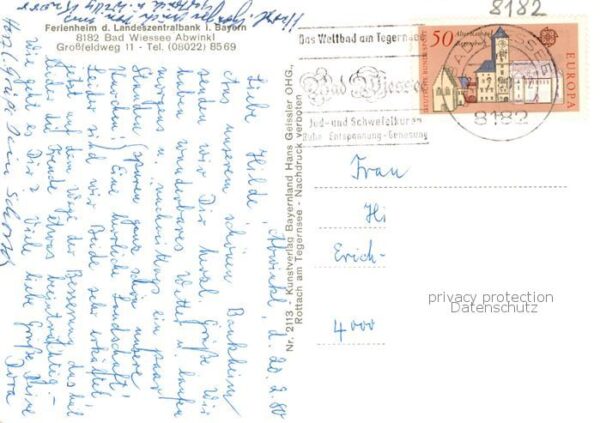 8182
Ferienheim d. Landeszentralbank i. Bayern
8182 Bad Wiessee Abwinkl
Großfeldweg 11 - Tel. (08022) 8569
Das Weltbad am Tegernsee
Bad Wiessee
Jod- und Schwefelkuren
Ruhe Entspannung Genesung
50
Altes Rathaus
Regensburg
DEUTSCHE BUNDESPOST
EUROPA
8182
Abwinkl, d. 20.9.80
Liebe Hilde!
Aus unserem schönen Bankheim
senden wir Dir herzl. Grüße. Wir
haben wunderbares Wetter u. laufen
morgens u. nachmittags ein paar
Stunden
Eine herrliche Landschaft!
Leider sind wir Beide sehr erkältet
auf dem Wege der Besserung, das hat
der Freude etwas beeinträchtigt.
Wie geht es Dir? Viele liebe Grüße Deine
Dora
Herzl. Grüße Dein
Nr. 2113 - Kunstverlag Bayernland Hans Geissler OHG.,
Rottach am Tegernsee - Nachdruck verboten
Frau
Hi
Erich-
4000
privacy protection
Datenschutz